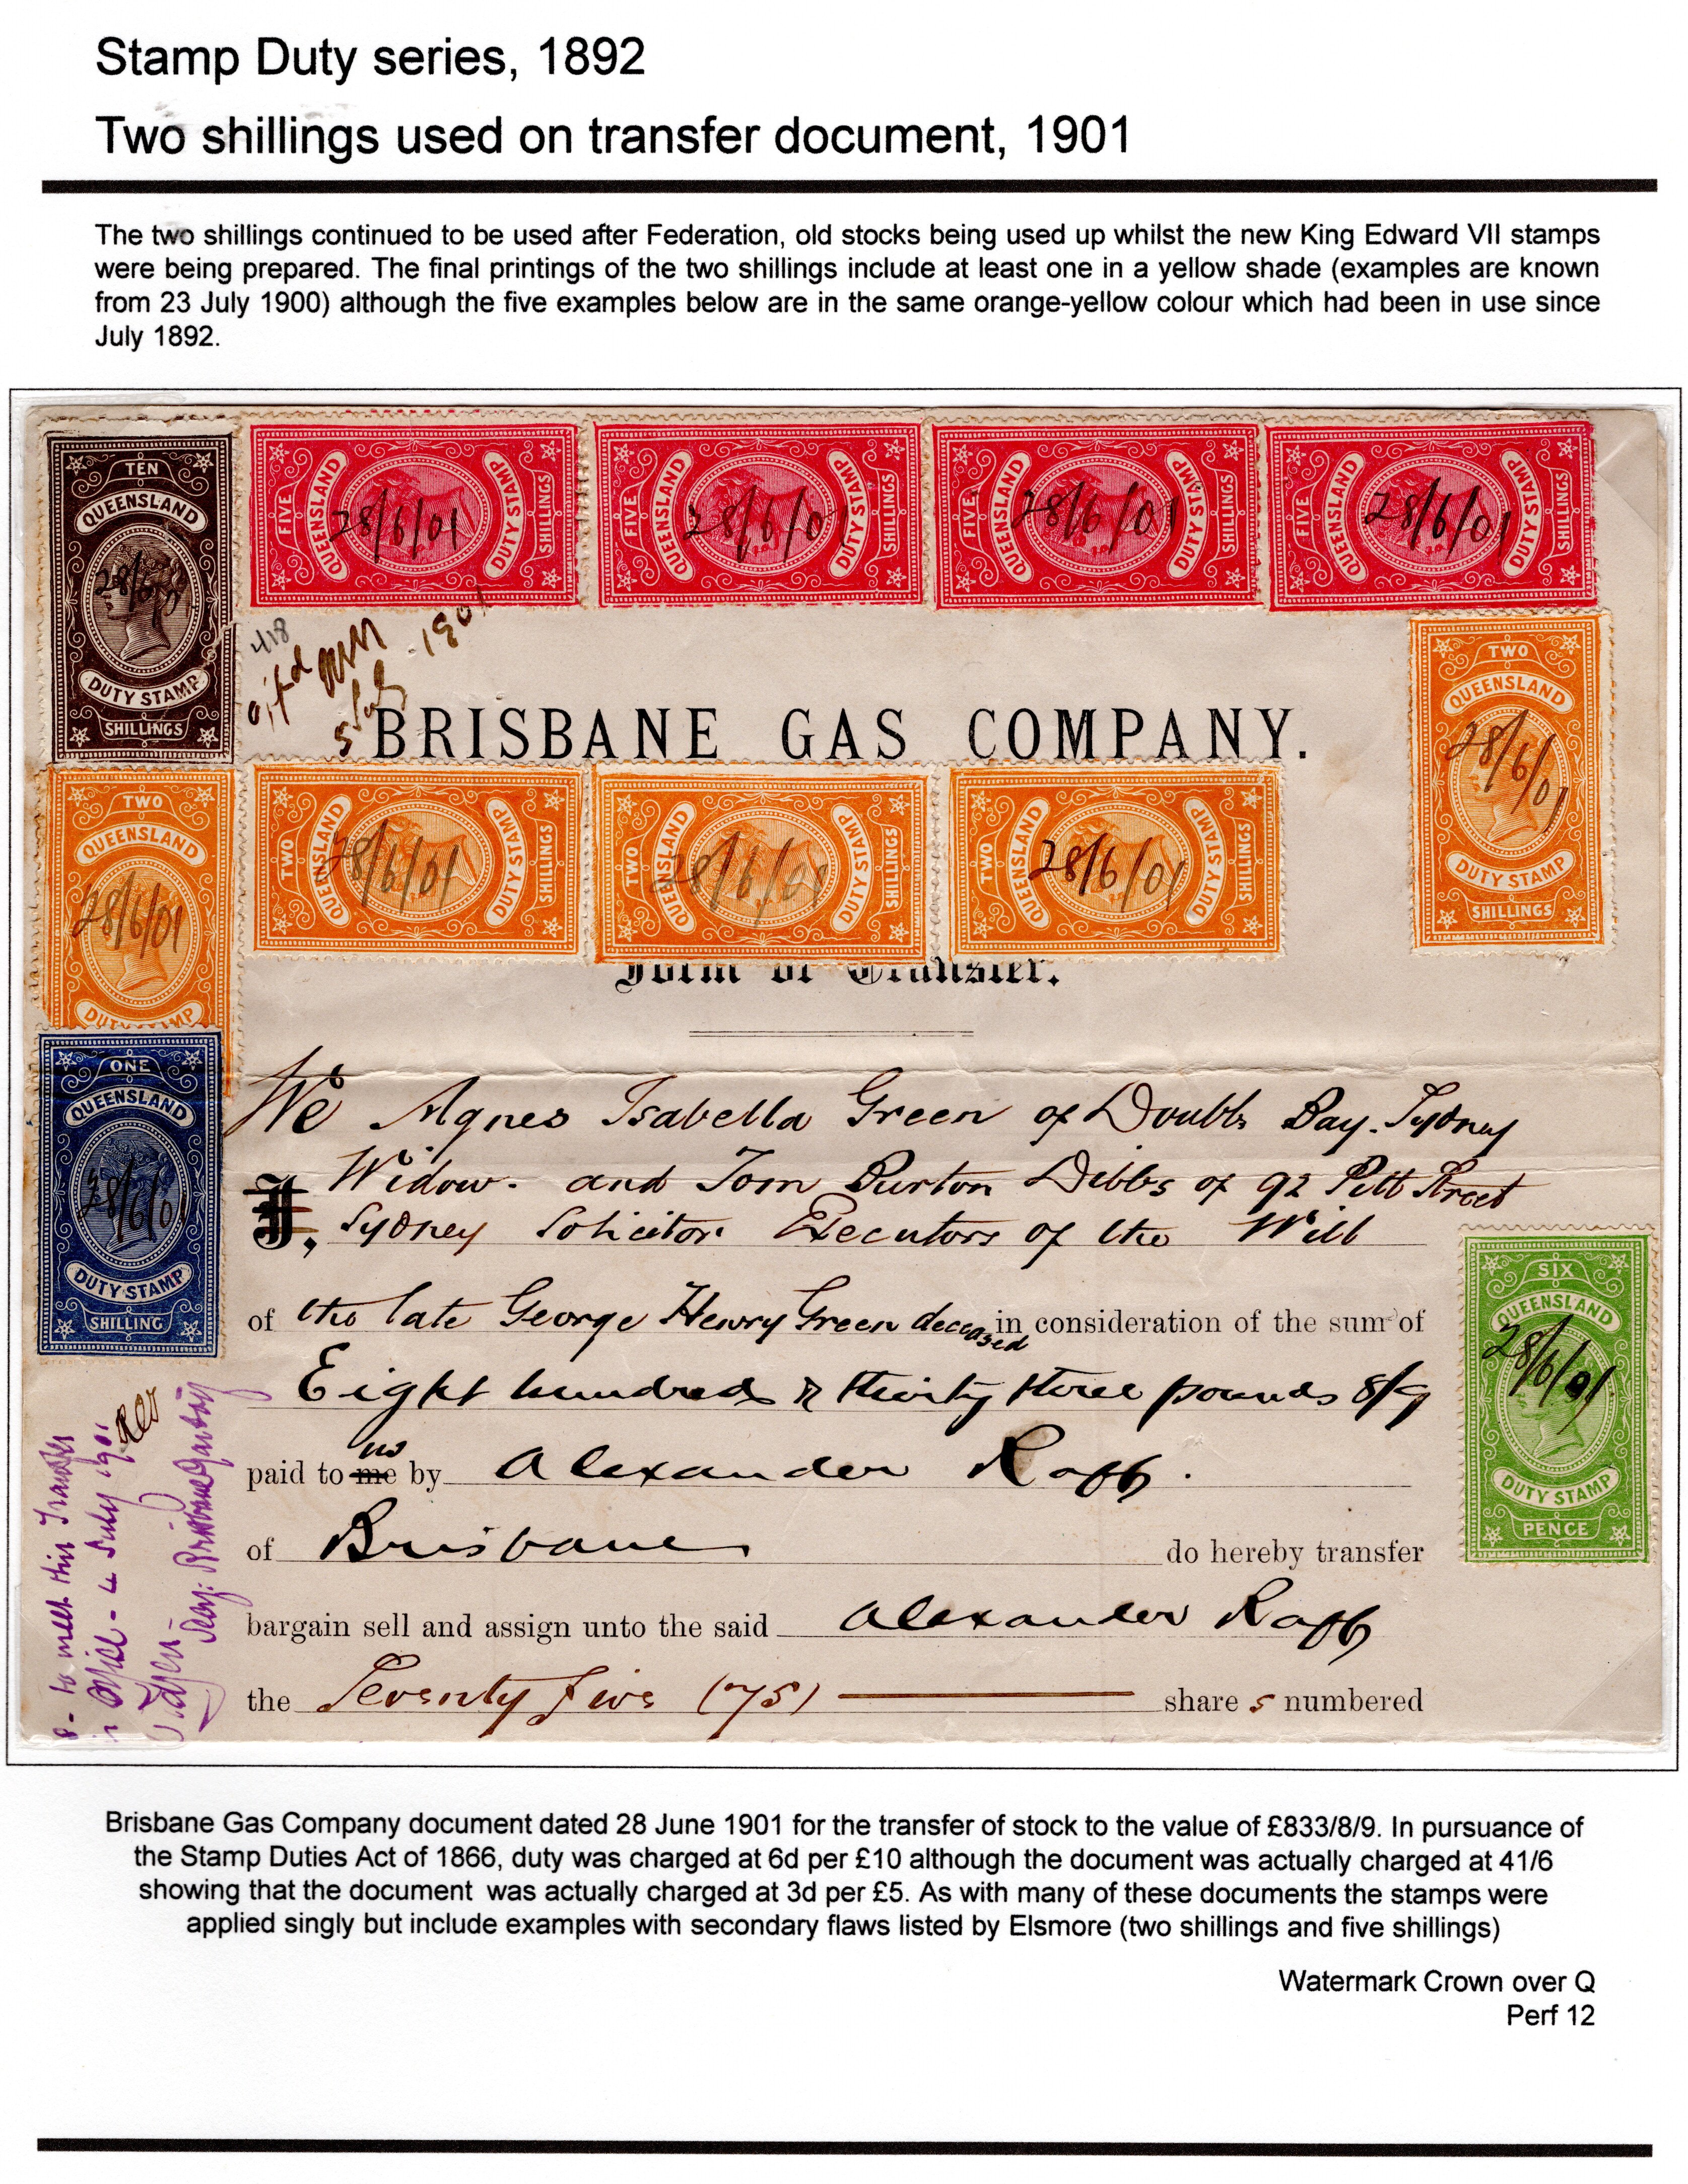 Stamp Duty series, 1892
Two shillings used on transfer document, 1901
The two shillings continued to be used after Federation, old stocks being used up whilst the new King Edward VII stamps
were being prepared. The final printings of the two shillings include at least one in a yellow shade (examples are known
from 23 July 1900) although the five examples below are in the same orange-yellow colour which had been in use since
July 1892.
TEN
QUEENSLAND
28/6/01
DUTY STAMP
SHILLINGS
FIVE
QUEENSLAND
28/6/01
DUTY STAMP
SHILLINGS
FIVE
QUEENSLAND
28/6/01
DUTY STAMP
SHILLINGS
FIVE
QUEENSLAND
28/6/01
DUTY STAMP
SHILLINGS
FIVE
QUEENSLAND
28/6/01
DUTY STAMP
SHILLINGS
418
1901
BRISBANE GAS COMPANY.
TWO
QUEENSLAND
28/6/01
DUTY STAMP
SHILLINGS
TWO
QUEENSLAND
28/6/01
DUTY STAMP
TWO
QUEENSLAND
28/6/01
DUTY STAMP
SHILLINGS
TWO
QUEENSLAND
28/6/01
DUTY STAMP
SHILLINGS
TWO
QUEENSLAND
28/6/01
DUTY STAMP
SHILLINGS
Form of Transfer.
ONE
QUEENSLAND
28/6/01
DUTY STAMP
SHILLING
We Agnes Isabella Green of Double Bay. Sydney
Widow. and Tom Burton Dibbs of 92 Pitt Street
I, Sydney Solicitor Executors of the Will
of the late George Henry Green deceased in consideration of the sum of
Eight hundred & thirty three pounds 8/9
paid to me us by Alexander Raff.
of Brisbane do hereby transfer
bargain sell and assign unto the said Alexander Raff
the Seventy five (75) share s numbered
SIX
QUEENSLAND
28/6/01
DUTY STAMP
PENCE
to meet this Transfer
4 July 1901
Brisbane Gas Coy
Brisbane Gas Company document dated 28 June 1901 for the transfer of stock to the value of £833/8/9. In pursuance of
the Stamp Duties Act of 1866, duty was charged at 6d per £10 although the document was actually charged at 41/6
showing that the document was actually charged at 3d per £5. As with many of these documents the stamps were
applied singly but include examples with secondary flaws listed by Elsmore (two shillings and five shillings)
Watermark Crown over Q
Perf 12